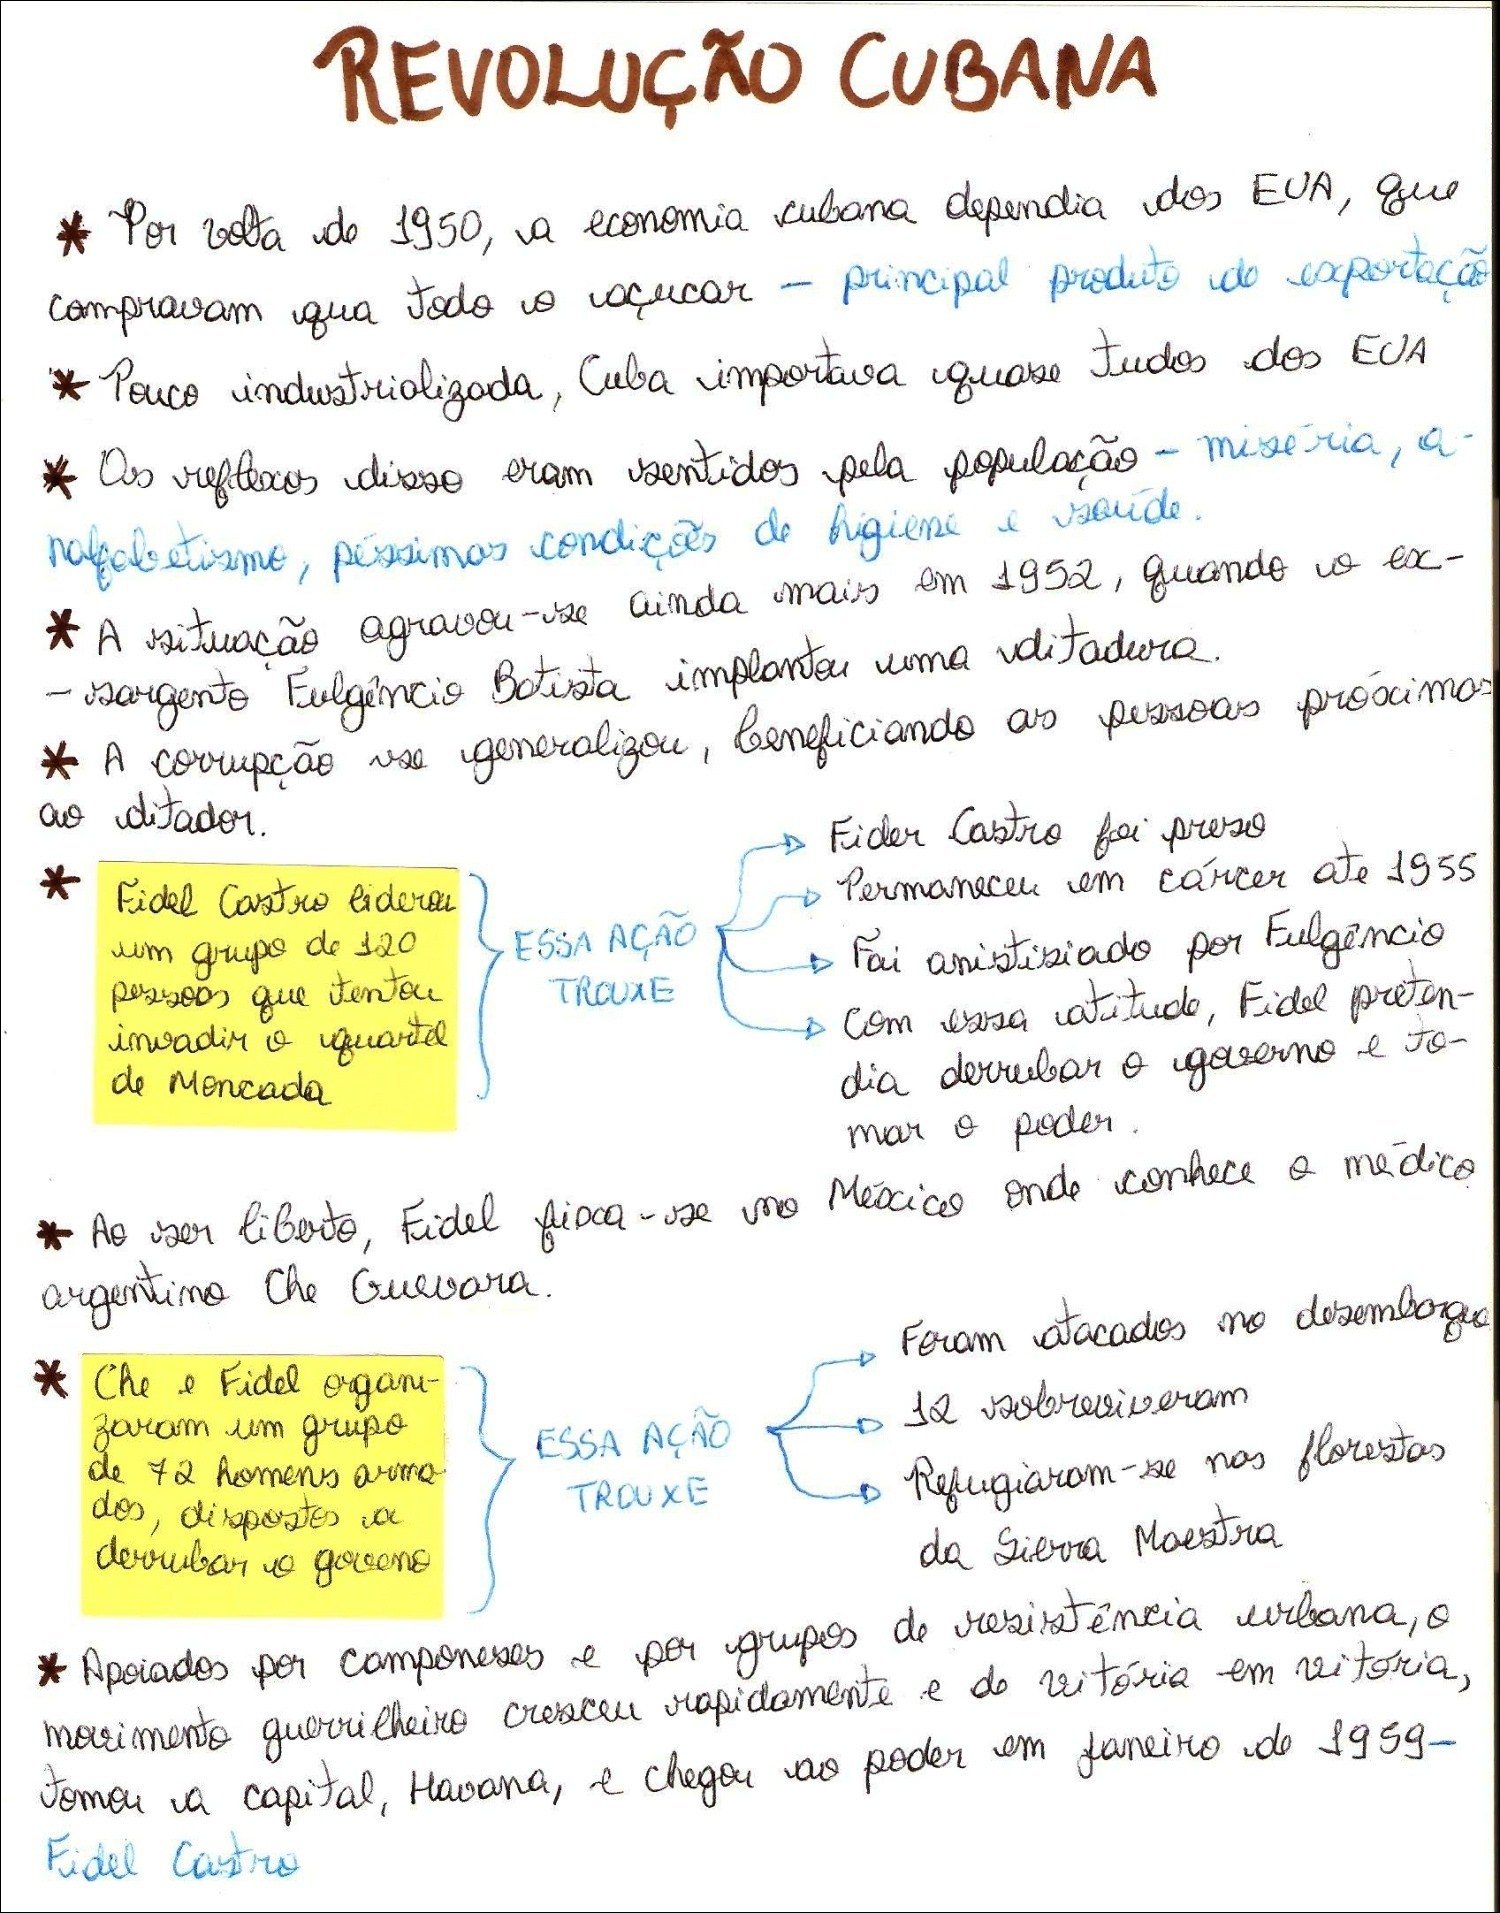 REVOLUÇÃO CUBANA
* Por volta de 1950, a economia cubana dependia dos EUA, que
compravam qua todo o açucar – principal produto de exportação
* Pouco industrializada, Cuba importava quase tudos dos EUA
* Os reflexos disso eram sentidos pela população – miséria, a-
nalfabetismo, péssimas condições de higiene e saúde.
* A situação agravou-se ainda mais em 1952, quando o ex-
– sargento Fulgêncio Batista implantou uma ditadura.
* A corrupção se generalizou, beneficiando as pessoas próximas
ao ditador.
* Fidel Castro liderou
um grupo de 120
pessoas que tentou
invadir o quartel
de Moncada
ESSA AÇÃO
TROUXE
Fider Castro foi preso
Permaneceu em cárcer ate 1955
Foi anistisiado por Fulgêncio
Com essa atitude, Fidel preten-
dia derrubar o governo e to-
mar o poder.
* Ao ser liberto, Fidel fixa-se no México onde conhece o médico
argentino Che Guevara.
* Che e Fidel organi-
zaram um grupo
de 72 homens arma
dos, dispostos a
derrubar o goveno
ESSA AÇÃO
TROUXE
Foram atacados no desembarque
12 sobreviveram
Refugiaram-se nas florestas
da Sierra Maestra
* Apoiados por camponeses e por grupos de resistência urbana, o
movimento guerrilheiro cresceu rapidamente e de vitória em vitória,
tomou a capital, Havana, e chegou ao poder em janeiro de 1959–
Fidel Castro